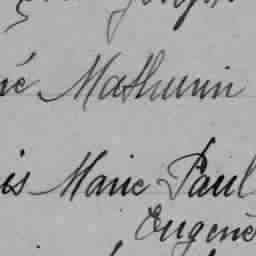 né Mathurin
is Marie Paul
Eugène